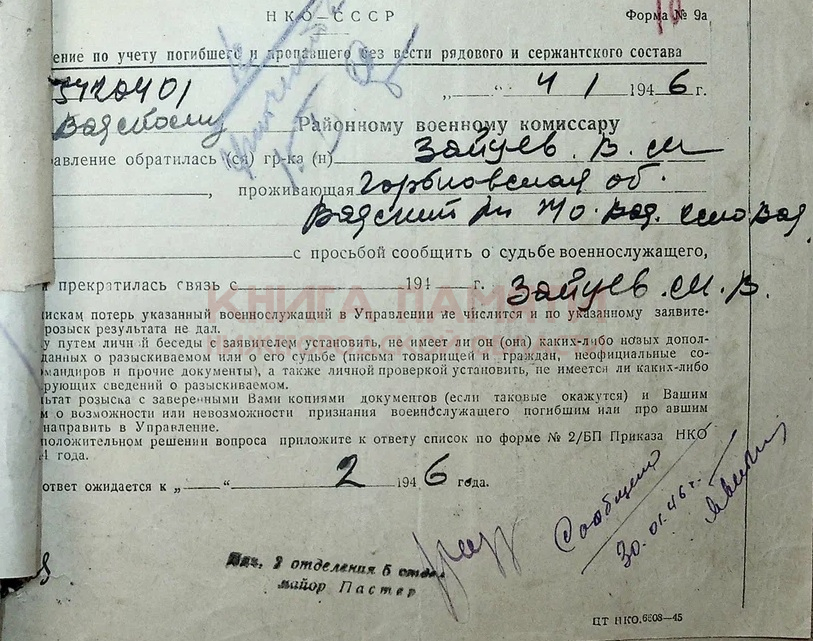 НКО—СССР
Форма № 9а
ение по учету погибшего и пропавшего без вести рядового и сержантского состава
„ “ 4 / 1 1946 г.
Вадскому Районному военному комиссару
равление обратилась (ся) гр-ка (н) Зайцев. В. М
, проживающая Горьковская об.
Вадский с. Вад
с просьбой сообщить о судьбе военнослужащего,
т прекратилась связь с 194 г. Зайцев. М. В.
КНИГА ПАМЯТИ
искам потерь указанный военнослужащий в Управлении не числится и по указанному заявите-
розыск результата не дал.
у путем личной беседы с заявителем установить, не имеет ли он (она) каких-либо новых допол-
данных о разыскиваемом или о его судьбе (письма товарищей и граждан, неофициальные со-
мандиров и прочие документы), а также личной проверкой установить, не имеется ли каких-либо
рующих сведений о разыскиваемом.
льтат розыска с заверенными Вами копиями документов (если таковые окажутся) и Вашим
м о возможности или невозможности признания военнослужащего погибшим или про авшим
направить в Управление.
положительном решении вопроса приложите к ответу список по форме № 2/БП Приказа НКО
1 года.
ответ ожидается к „ “ 2 1946 года.
Сообщено
30.01.46 г.
Нач. 2 отделения 5 отде
майор Пастер
ЦТ НКО.6608—45